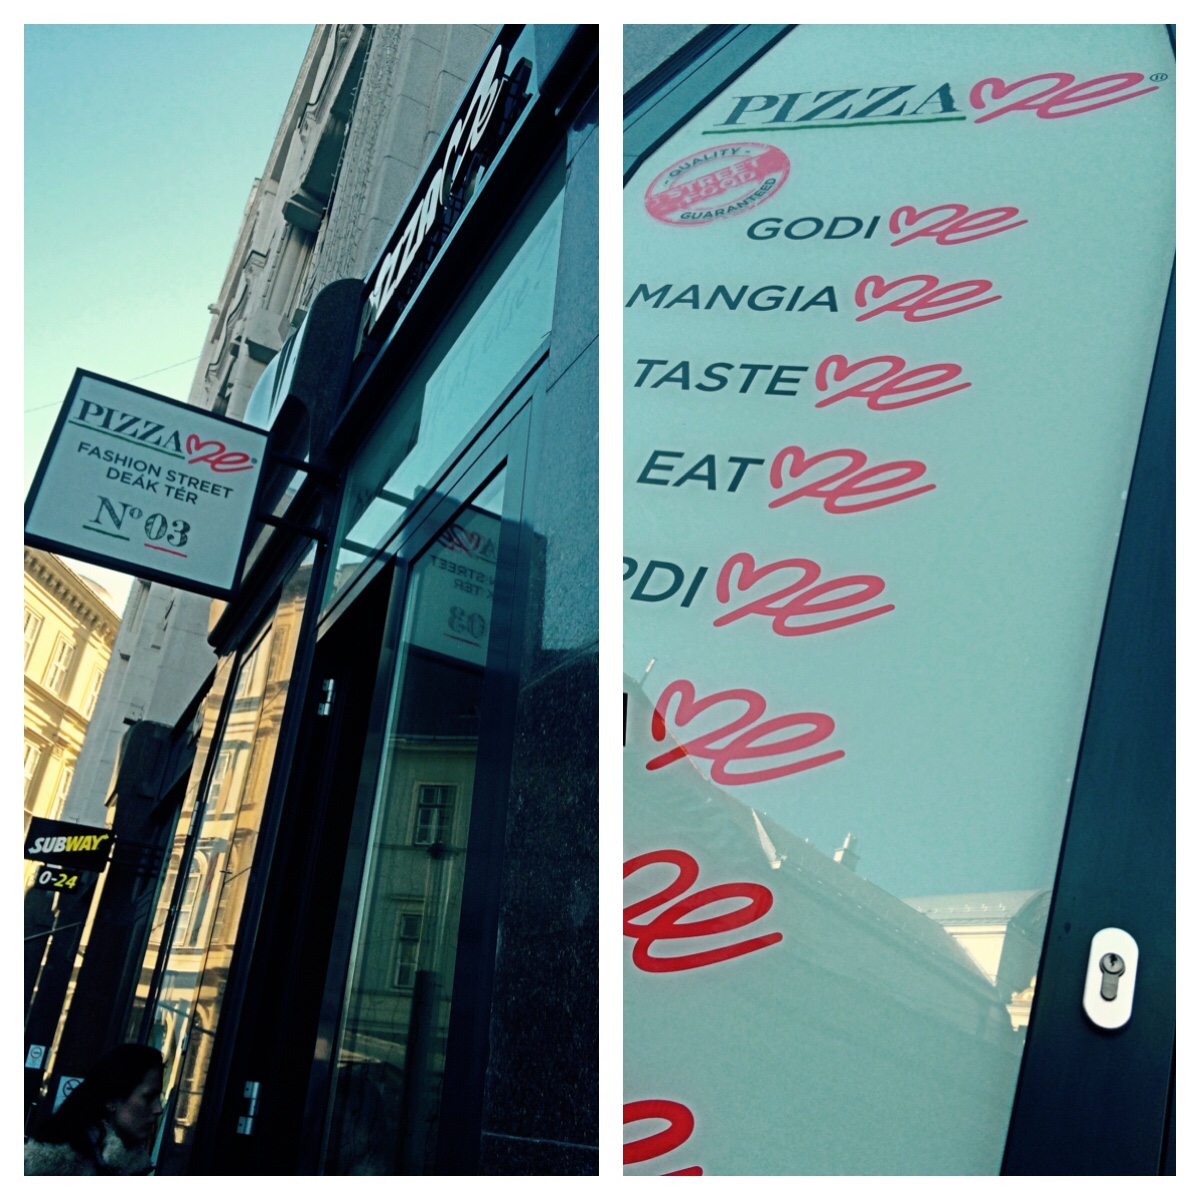 PIZZA me
PIZZA me
FASHION STREET
DEÁK TÉR
Nº 03
SUBWAY
0-24
PIZZA me®
QUALITY
STREET
FOOD
GUARANTEED
GODI me
MANGIA me
TASTE me
EAT me
me
me